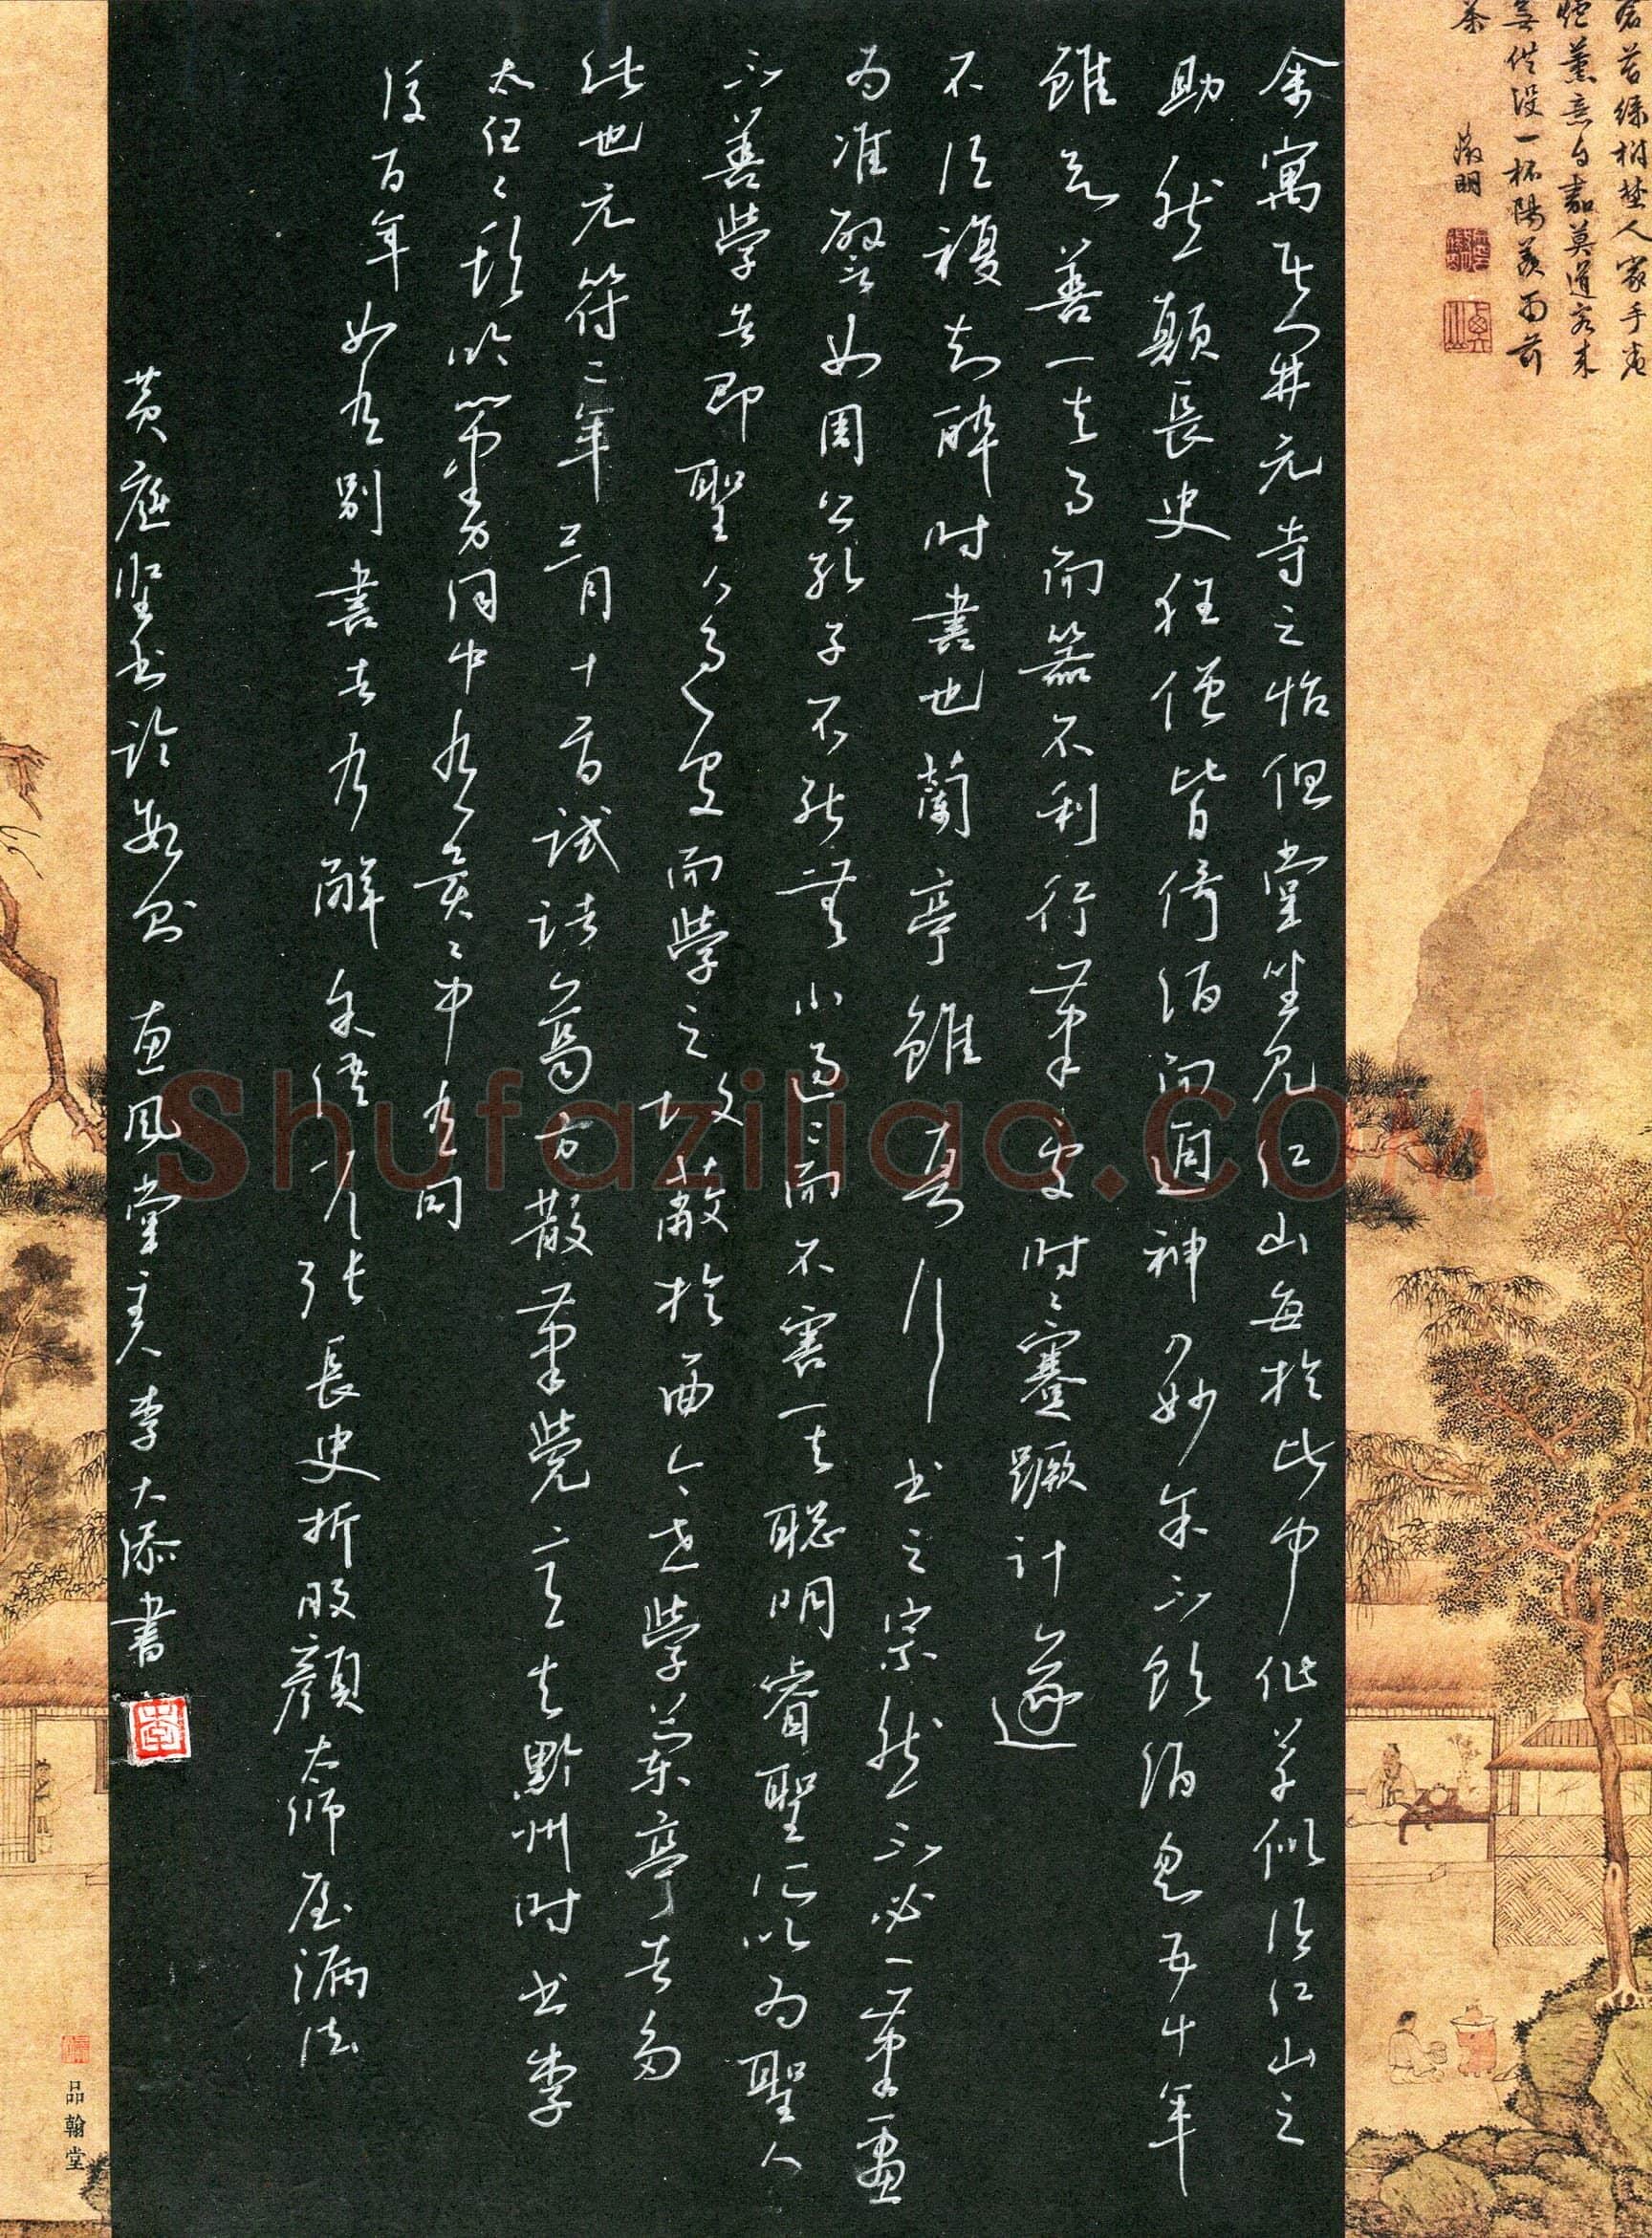 蒼苔綠樹埜人家手卷
爐薰意自嘉莫道客来
無供設一杯陽羡雨前
茶
徵明
余寓居开元寺之怡偲堂坐見江山每於此中作草似得江山之
助然顛長史狂僧皆倚酒而通神入妙余不飲酒忽五十年
雖欲善其事而器不利行筆處時時蹇蹶計遂
不得復知醉时書也蘭亭雖真行书之宗然不必一筆畫
为准譬如周公孔子不能無小過過而不害其聪明睿聖所以为聖人
不善學者即聖人之過處而學之故蔽於一曲今世學蘭亭者多
此也元符二年三月十二日試諸葛方散筆覺意与黔州时书李
太白白頭吟筆力同中有異異中有同
後百年如有別書者乃解余語 張長史折股顏太師屋漏法
黄庭坚书论數则 惠風堂主人李大添書
品翰堂
Shufaziliao.com